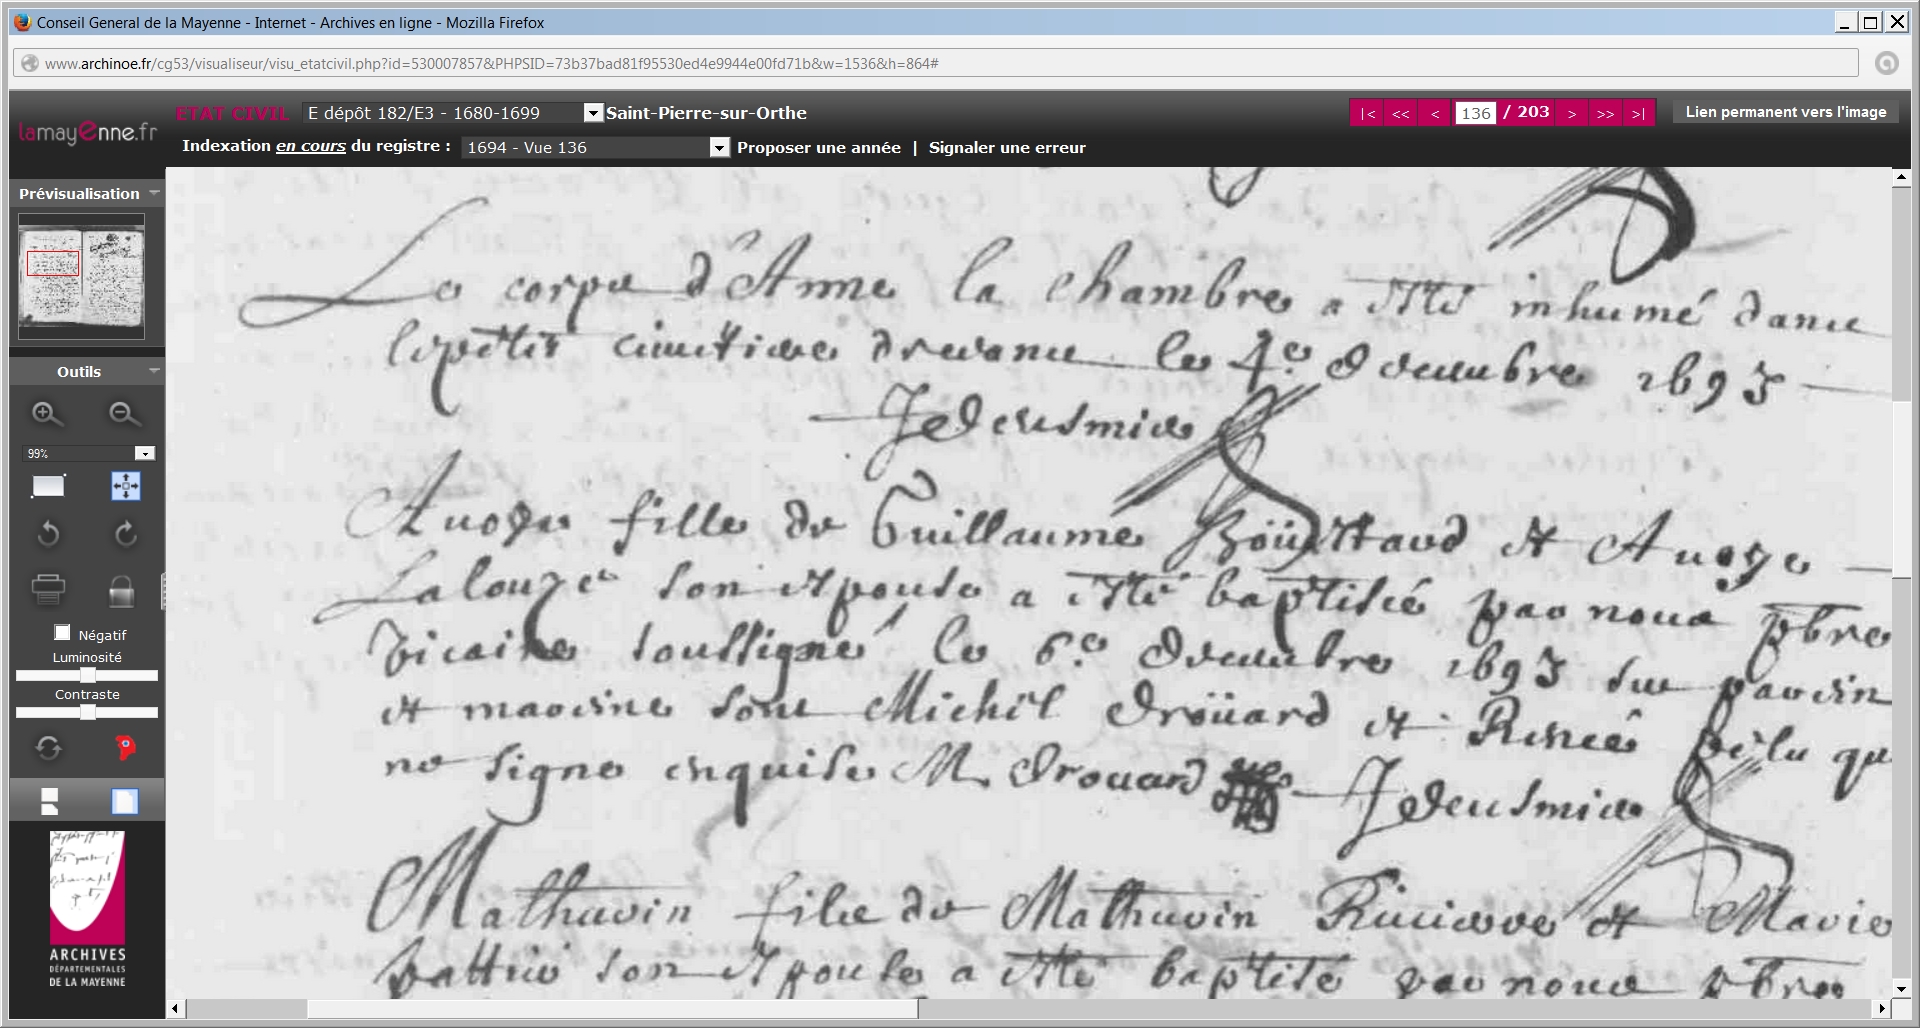 Conseil General de la Mayenne - Internet - Archives en ligne - Mozilla Firefox
www.archinoe.fr/cg53/visualiseur/visu_etatcivil.php?id=530007857&PHPSID=73b37bad81f95530ed4e9944e00fd71b&w=1536&h=864#
lamayenne.fr
ETAT CIVIL E dépôt 182/E3 - 1680-1699 Saint-Pierre-sur-Orthe
|< << < 136 / 203 > >> >| Lien permanent vers l'image
Indexation en cours du registre : 1694 - Vue 136 Proposer une année | Signaler une erreur
Prévisualisation
Outils
99%
Négatif
Luminosité
Contraste
ARCHIVES
DÉPARTEMENTALES
DE LA MAYENNE
Le corps d'Anne la chambre a esté inhumé dans
le petit cimitiere de ceans le 4e decembre 1693
fille de Guillaume et
son espouse a esté baptisée par nous pbre
vicaire soussigné le 6e decembre 1693 son parein
et mareine sont Michel Droüard et Renée qu
ne signe enquise M Drouard
Mathurin fils de Mathurin et Marie
son espouse a esté baptisé par nous pbre